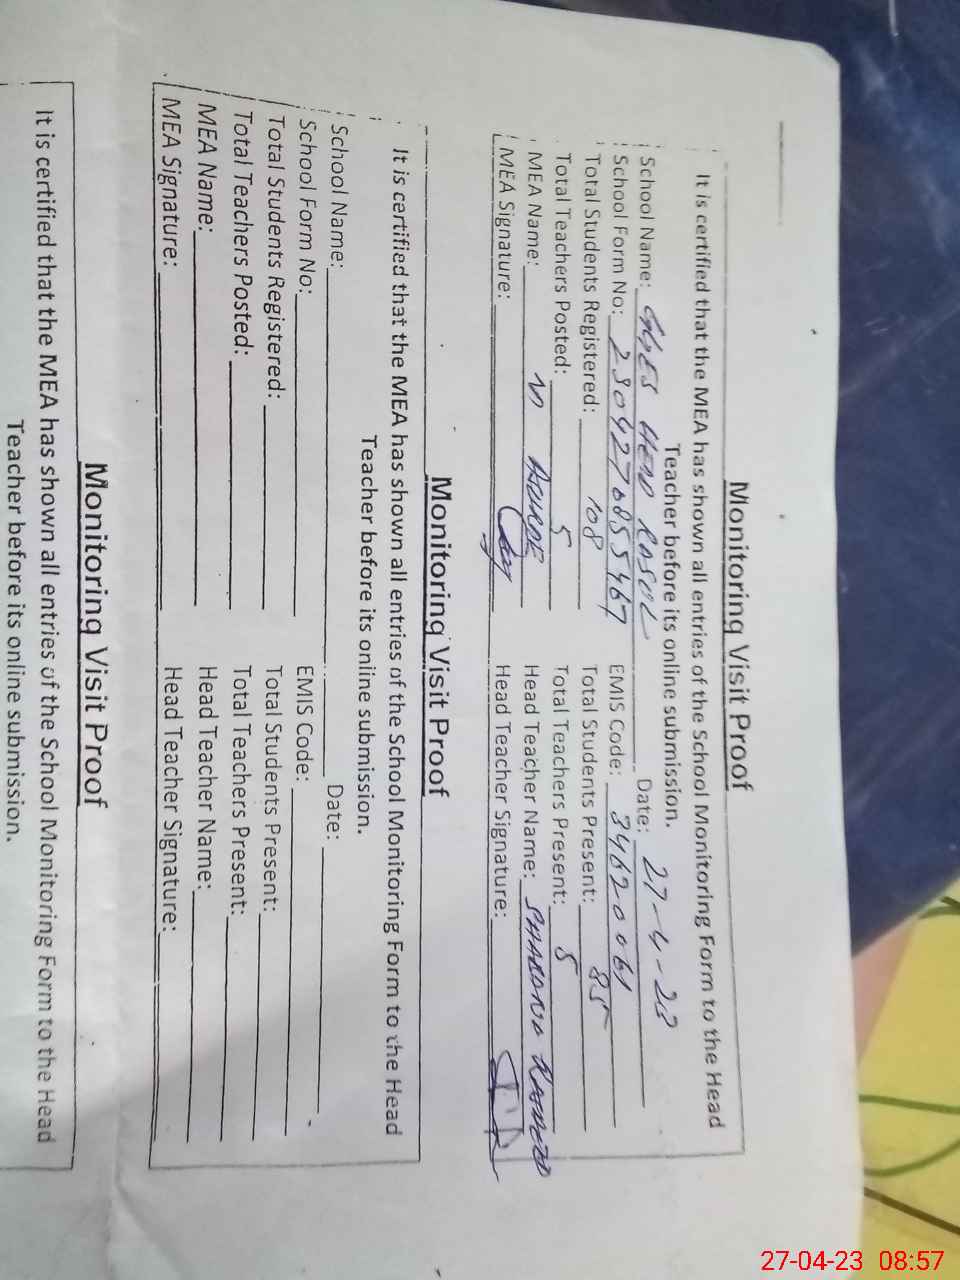 Monitoring Visit Proof
It is certified that the MEA has shown all entries of the School Monitoring Form to the Head
Teacher before its online submission.
School Name: GGES HEAD RASUL Date: 27-4-23
School Form No: 2304270855467 EMIS Code: 34620061
Total Students Registered: 108 Total Students Present: 85
Total Teachers Posted: 5 Total Teachers Present: 5
MEA Name: M Head Teacher Name:
MEA Signature: Head Teacher Signature:
Monitoring Visit Proof
It is certified that the MEA has shown all entries of the School Monitoring Form to the Head
Teacher before its online submission.
School Name: Date:
School Form No: EMIS Code:
Total Students Registered: Total Students Present:
Total Teachers Posted: Total Teachers Present:
MEA Name: Head Teacher Name:
MEA Signature: Head Teacher Signature:
Monitoring Visit Proof
It is certified that the MEA has shown all entries of the School Monitoring Form to the Head
Teacher before its online submission.
27-04-23 08:57